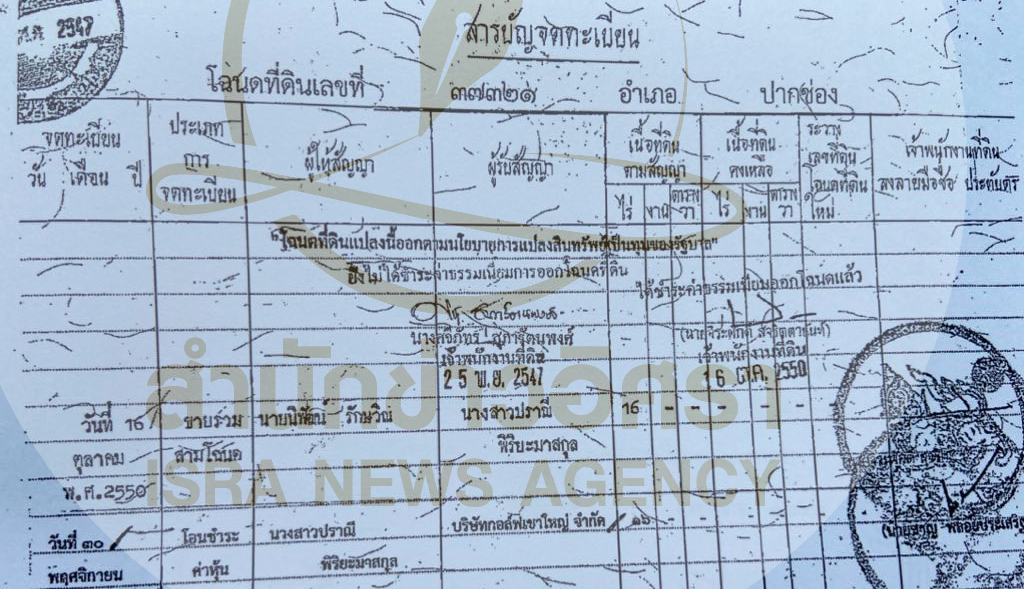 พ.ศ. 2547
สารบัญจดทะเบียน
โฉนดที่ดินเลขที่ ๓๗๓๒๑ อำเภอ ปากช่อง
จดทะเบียน
วัน เดือน ปี
ประเภท
การ
จดทะเบียน
ผู้ให้สัญญา
ผู้รับสัญญา
เนื้อที่ดิน
ตามสัญญา
ไร่ งาน ตาราง
วา
เนื้อที่ดิน
คงเหลือ
ไร่ งาน ตาราง
วา
ระวาง
เลขที่ดิน
โฉนดที่ดิน
ใหม่
เจ้าพนักงานที่ดิน
ลงลายมือชื่อ ประทับตรา
"โฉนดที่ดินแปลงนี้ออกตามนโยบายการแปลงสินทรัพย์เป็นทุนของรัฐบาล"
ยังไม่ได้ชำระค่าธรรมเนียมการออกโฉนดที่ดิน
ได้ชำระค่าธรรมเนียมออกโฉนดแล้ว
เจ้าพนักงานที่ดิน
25 พ.ย. 2547
เจ้าพนักงานที่ดิน
16 ต.ค. 2550
วันที่ 16 ขายรวม นายนิพัฒน์ รักษวิณ นางสาวปราณี 16 - - - - -
ตุลาคม สามโฉนด พิริยะมาสกุล
พ.ศ.2550
วันที่ ๓๐ โอนชำระ นางสาวปราณี บริษัทกอล์ฟเขาใหญ่ จำกัด ๑๖ - -
พฤศจิกายน ค่าหุ้น พิริยะมาสกุล
สำนักข่าวอิศรา
ISRA NEWS AGENCY